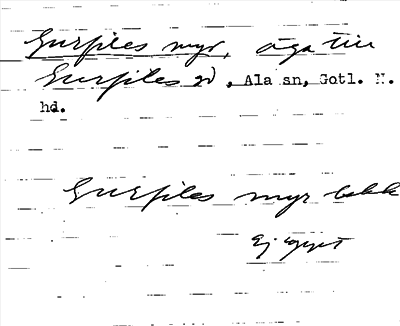 Gurfiles myr, äga till
Gurfiles gd, Ala sn, Gotl. N.
hd.
Gurfiles myr bekk
Ej gyst